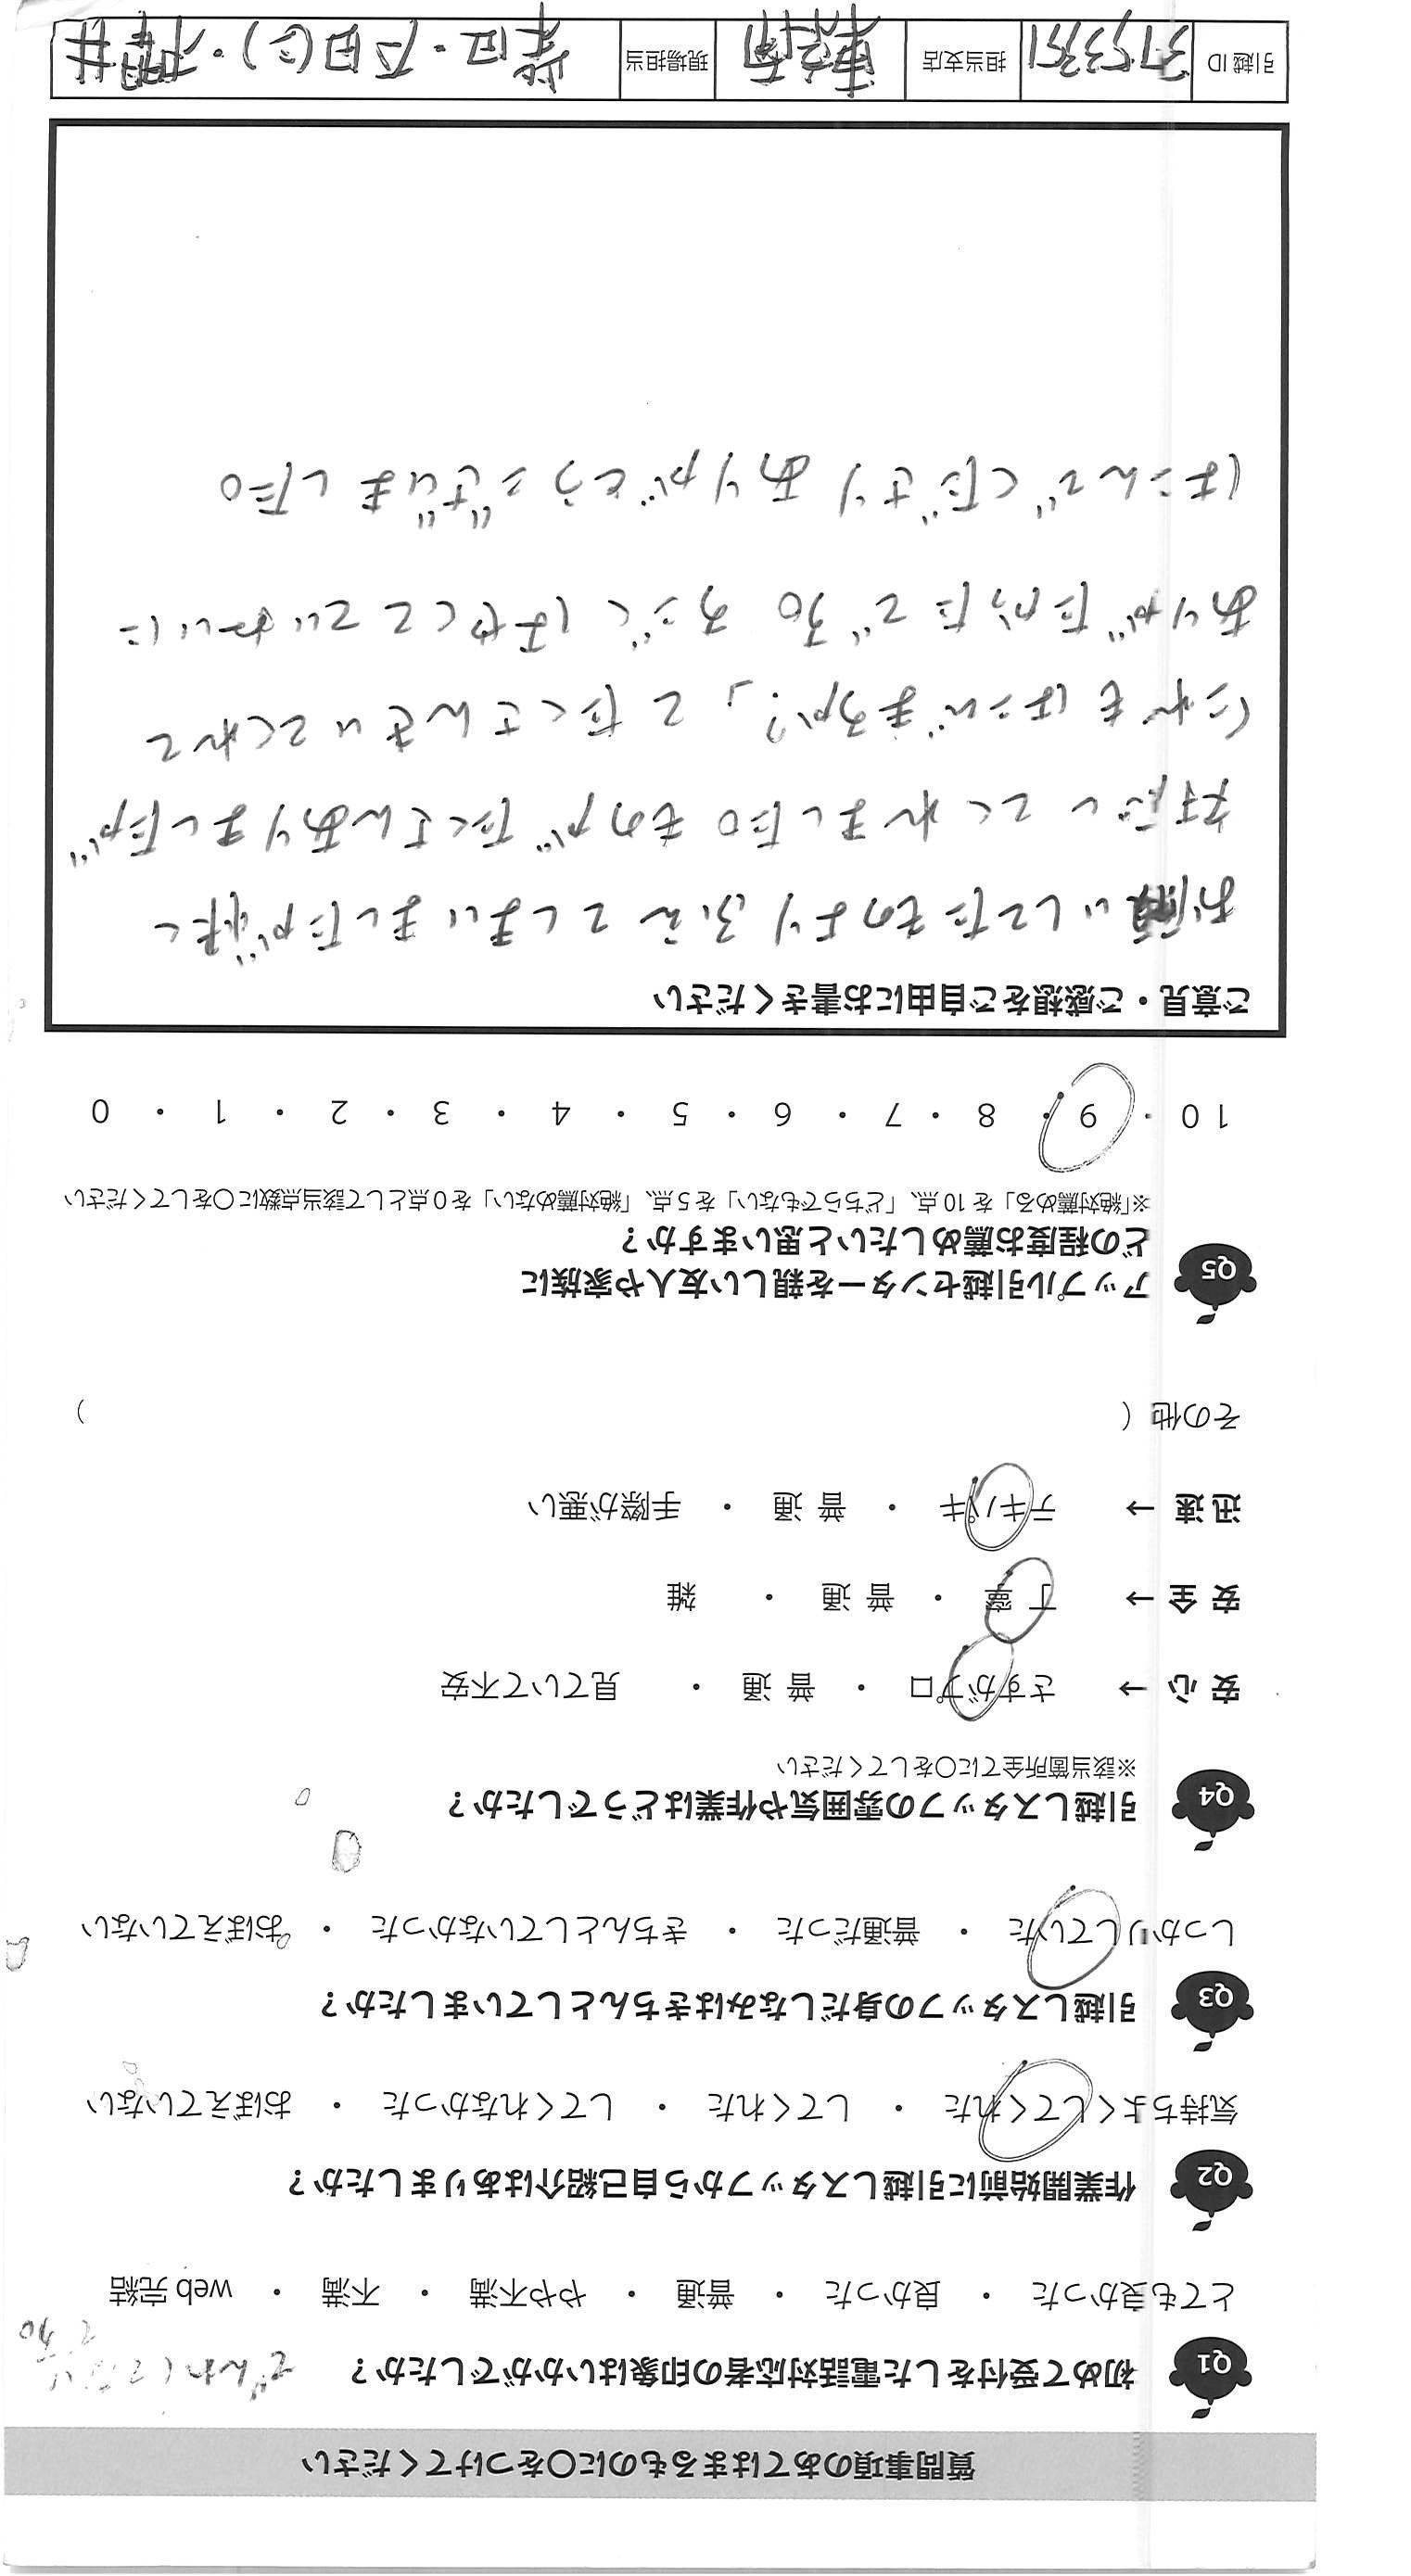 質問事項のあてはまるものに〇をつけてください
Q1 初めて受付をした電話対応者の印象はいかがでしたか?
とても良かった ・ 良かった ・ 普通 ・ やや不満 ・ 不満 ・ web 完結
Q2 作業開始前に引越しスタッフから自己紹介はありましたか?
気持ちよくしてくれた ・ してくれた ・ してくれなかった ・ おぼえていない
Q3 引越しスタッフの身だしなみはきちんとしていましたか?
しっかりしていた ・ 普通だった ・ きちんとしていなかった ・ おぼえていない
Q4 引越しスタッフの雰囲気や作業はどうでしたか?
※該当箇所全てに〇をしてください
安 心 → さすがプロ ・ 普 通 ・ 見ていて不安
安 全 → 丁 寧 ・ 普 通 ・ 雑
迅 速 → テキパキ ・ 普 通 ・ 手際が悪い
その他 ( )
Q5 アップル引越センターを親しい友人や家族に
どの程度お薦めしたいと思いますか?
※「絶対薦める」を 10 点、「どちらでもない」を 5 点、「絶対薦めない」を 0 点として該当点数に〇をしてください
10 ・ 9 ・ 8 ・ 7 ・ 6 ・ 5 ・ 4 ・ 3 ・ 2 ・ 1 ・ 0
ご意見・ご感想をご自由にお書きください
お願いしてたものよりふえてしまいましたが快く
対応してくれました。ものがたくさんありましたが
「これもはこびますか?」とたくさんきいてくれて
ありがたかったです。すごくはやくてていねいに
はこんでくださりありがとうございました。
引越 ID 担当支店 現場担当